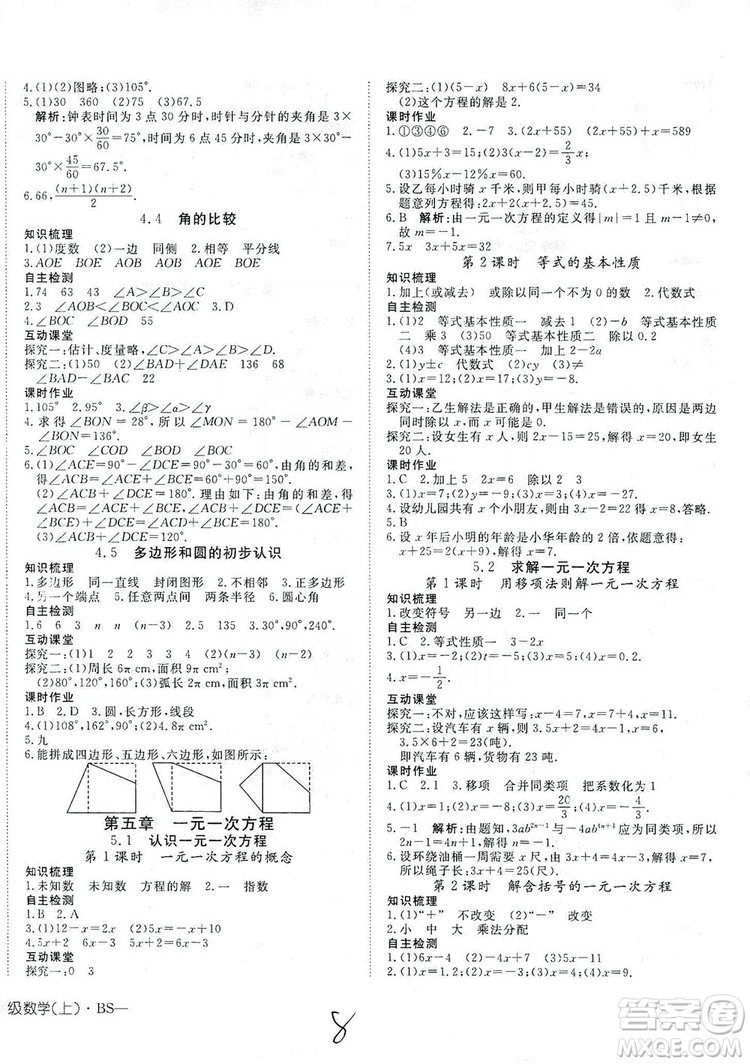 4.(1)(2)图略;(3)105°.
5.(1)30 360 (2)75 (3)67.5
解析:钟表时间为 3 点 30 分时,时针与分针的夹角是 3×
30°-30°×30/60=75°;时间为 6 点 45 分时,夹角是 3×
30°-30°×45/60=67.5°.
6.66,(n+1)(n+2)/2.
4.4 角的比较
知识梳理
1.(1)度数 (2)一边 同侧 2.相等 平分线
3.AOE BOE AOB BOE AOB AOE
自主检测
1.74 63 43 ∠A>∠B>∠C
2.3 ∠AOB<∠BOC<∠AOC 3.D
4.∠BOC ∠BOD 55
互动课堂
探究一:估计、度量略,∠C>∠A>∠B
探究二:(1)50 (2)∠BAD+∠BAC 130 (3)68
∠BAD-∠BAC
课时作业
1.105° 2.95° 3.∠β>∠α>∠γ
4.求得∠BON=28°,所以∠MON=180°-∠AOM-
∠BON=136°.
5.∠AOC ∠BOD
6.(1)∠ACE=90°-∠DCE=60°,由角的和差,得
∠ACB=∠ACE+∠BCE=150°.
(2)∠ACE=90°-∠DCE,由角的和差,得∠ACB=
∠ACE+∠BCE=180°-∠DCE,所以∠ACB+
∠DCE=180°.
(3)∠ACB+∠DCE=180°.
4.5 多边形和圆的初步认识
知识梳理
1.多边形 同一直线 封闭图形 2.不相邻 3.相等
4.另一个端点 5.任意两点间 两条半径 6.圆心角
自主检测
1.6 6 3 n n (n-3) 2.5 135 3.30°,90°,240°.
互动课堂
探究一:(1)1 2 2 3 3 4 (2)(n-3) (n-2)
探究二:(1)周长 6π cm,面积 9π cm².
(2)80°,120°,160°.(3)弧长 2π cm,面积 3π cm².
课时作业
1.B 2.D 3.圆,长方形,线段
4.(1)108°,162°,90°.(2)10π cm²,15π cm².
5.九
6.能拼成四边形、五边形、六边形,如图:
第五章 一元一次方程
5.1 认识一元一次方程
第 1 课时 一元一次方程的概念
知识梳理
1.未知数 未知数 方程的解 2.一 指数
自主检测
1.B 2.A
3.(1)12-x=7 (2)2x-1=5 (3)5x=-x+10
4.5x+2=6x-8
互动课堂
探究一:0 3
探究二:(1)(5-x) 8x+6(5-x)=34
(2)这个方程的解是2.
课时作业
1.①③④⑥ 2.-7 3.(2x+55) (2x+55)+x=589
4.(1)5x+3=7x (2)x-6=2/3x
(3)15%x-12%x=5
5.设乙每小时骑 x 千米,则甲每小时骑(x+2)千米,根据
题意列方程:2x+2(x+2)+2.5=50.
6.B 解析:由一元一次方程的定义得|m|=1,且m-1≠
0.故m=-1.
7.5x 4x 5x+4x=32
第 2 课时 等式的基本性质
知识梳理
1.加上(或减去) 或除以同一个不为0 2.代数式
自主检测
1.(1)2 等式基本性质一 减去1 (2)6 等式基本性质
二 乘3 (3)50 等式基本性质二 除以 2/10
(4)3 等式基本性质一 加上 2-2a
2.(1)y±c 代数式 (2)cy (3)≠
互动课堂
探究一:乙生解法是正确的,甲生解法是错误的,原因是两边
同时除以x,而x可能为0.
探究二:设女生有 x 人,则男生有2x人,即2x=40.即女生
有20人.
课时作业
1.C 2.加上5 2x 除以2 3
3.(1)x=-7 (2)y=4 (3)x=10 (4)x=-9
4.设幼儿园共有 x 个小朋友,则由题意得 3x+1=8,答略.
5.B
6.设 x 年后小明的年龄是小华年龄的 2 倍,由题意得:
x+25=2(x+12),解得x=1.
5.2 求解一元一次方程
第 1 课时 用移项法则解一元一次方程
知识梳理
1.改变符号 另一边 2.一 同一个
自主检测
1.C 2.等式性质一
3.(1)x=4 (2)t=5 (3)y=1 (4)x=-1
4.x=-1/2
互动课堂
探究一:不对,应该这样写:x+4=7,移项得 x=7-4.
探究二:设汽车有 x 辆,由题意得 3.5x+2=4x-1,x=6.
3.5×6+2=23(吨).
即汽车有 6 辆,货物有 23 吨.
课时作业
1.C 2.1 3.移项 合并同类项 把系数化为1
4.(1)x=1 (2)x=2 (3)x=20/3 (4)x=2
5.-1 解析:由题知,3ab²ⁿ⁻¹与-4ab⁴ⁿ⁺¹是同类项,所以
2n-1=4n+1,解得n=-1.
6.设环绕油桶一周需要 x 尺,由题意得 3x+4=4x-3,x=7.
所以绳子长:3x+4=25(尺).
第 2 课时 解含括号的一元一次方程
知识梳理
1.(1)“+” 不改变 (2)“-” 改变
2.小 中 大 乘法分配
自主检测
1.(1)6x-4 (2)-15x-5 (3)5x-7
2.(1)x=6 (2)x=0
级数学(上)·BS—
8
答案圈
MXQE.COM